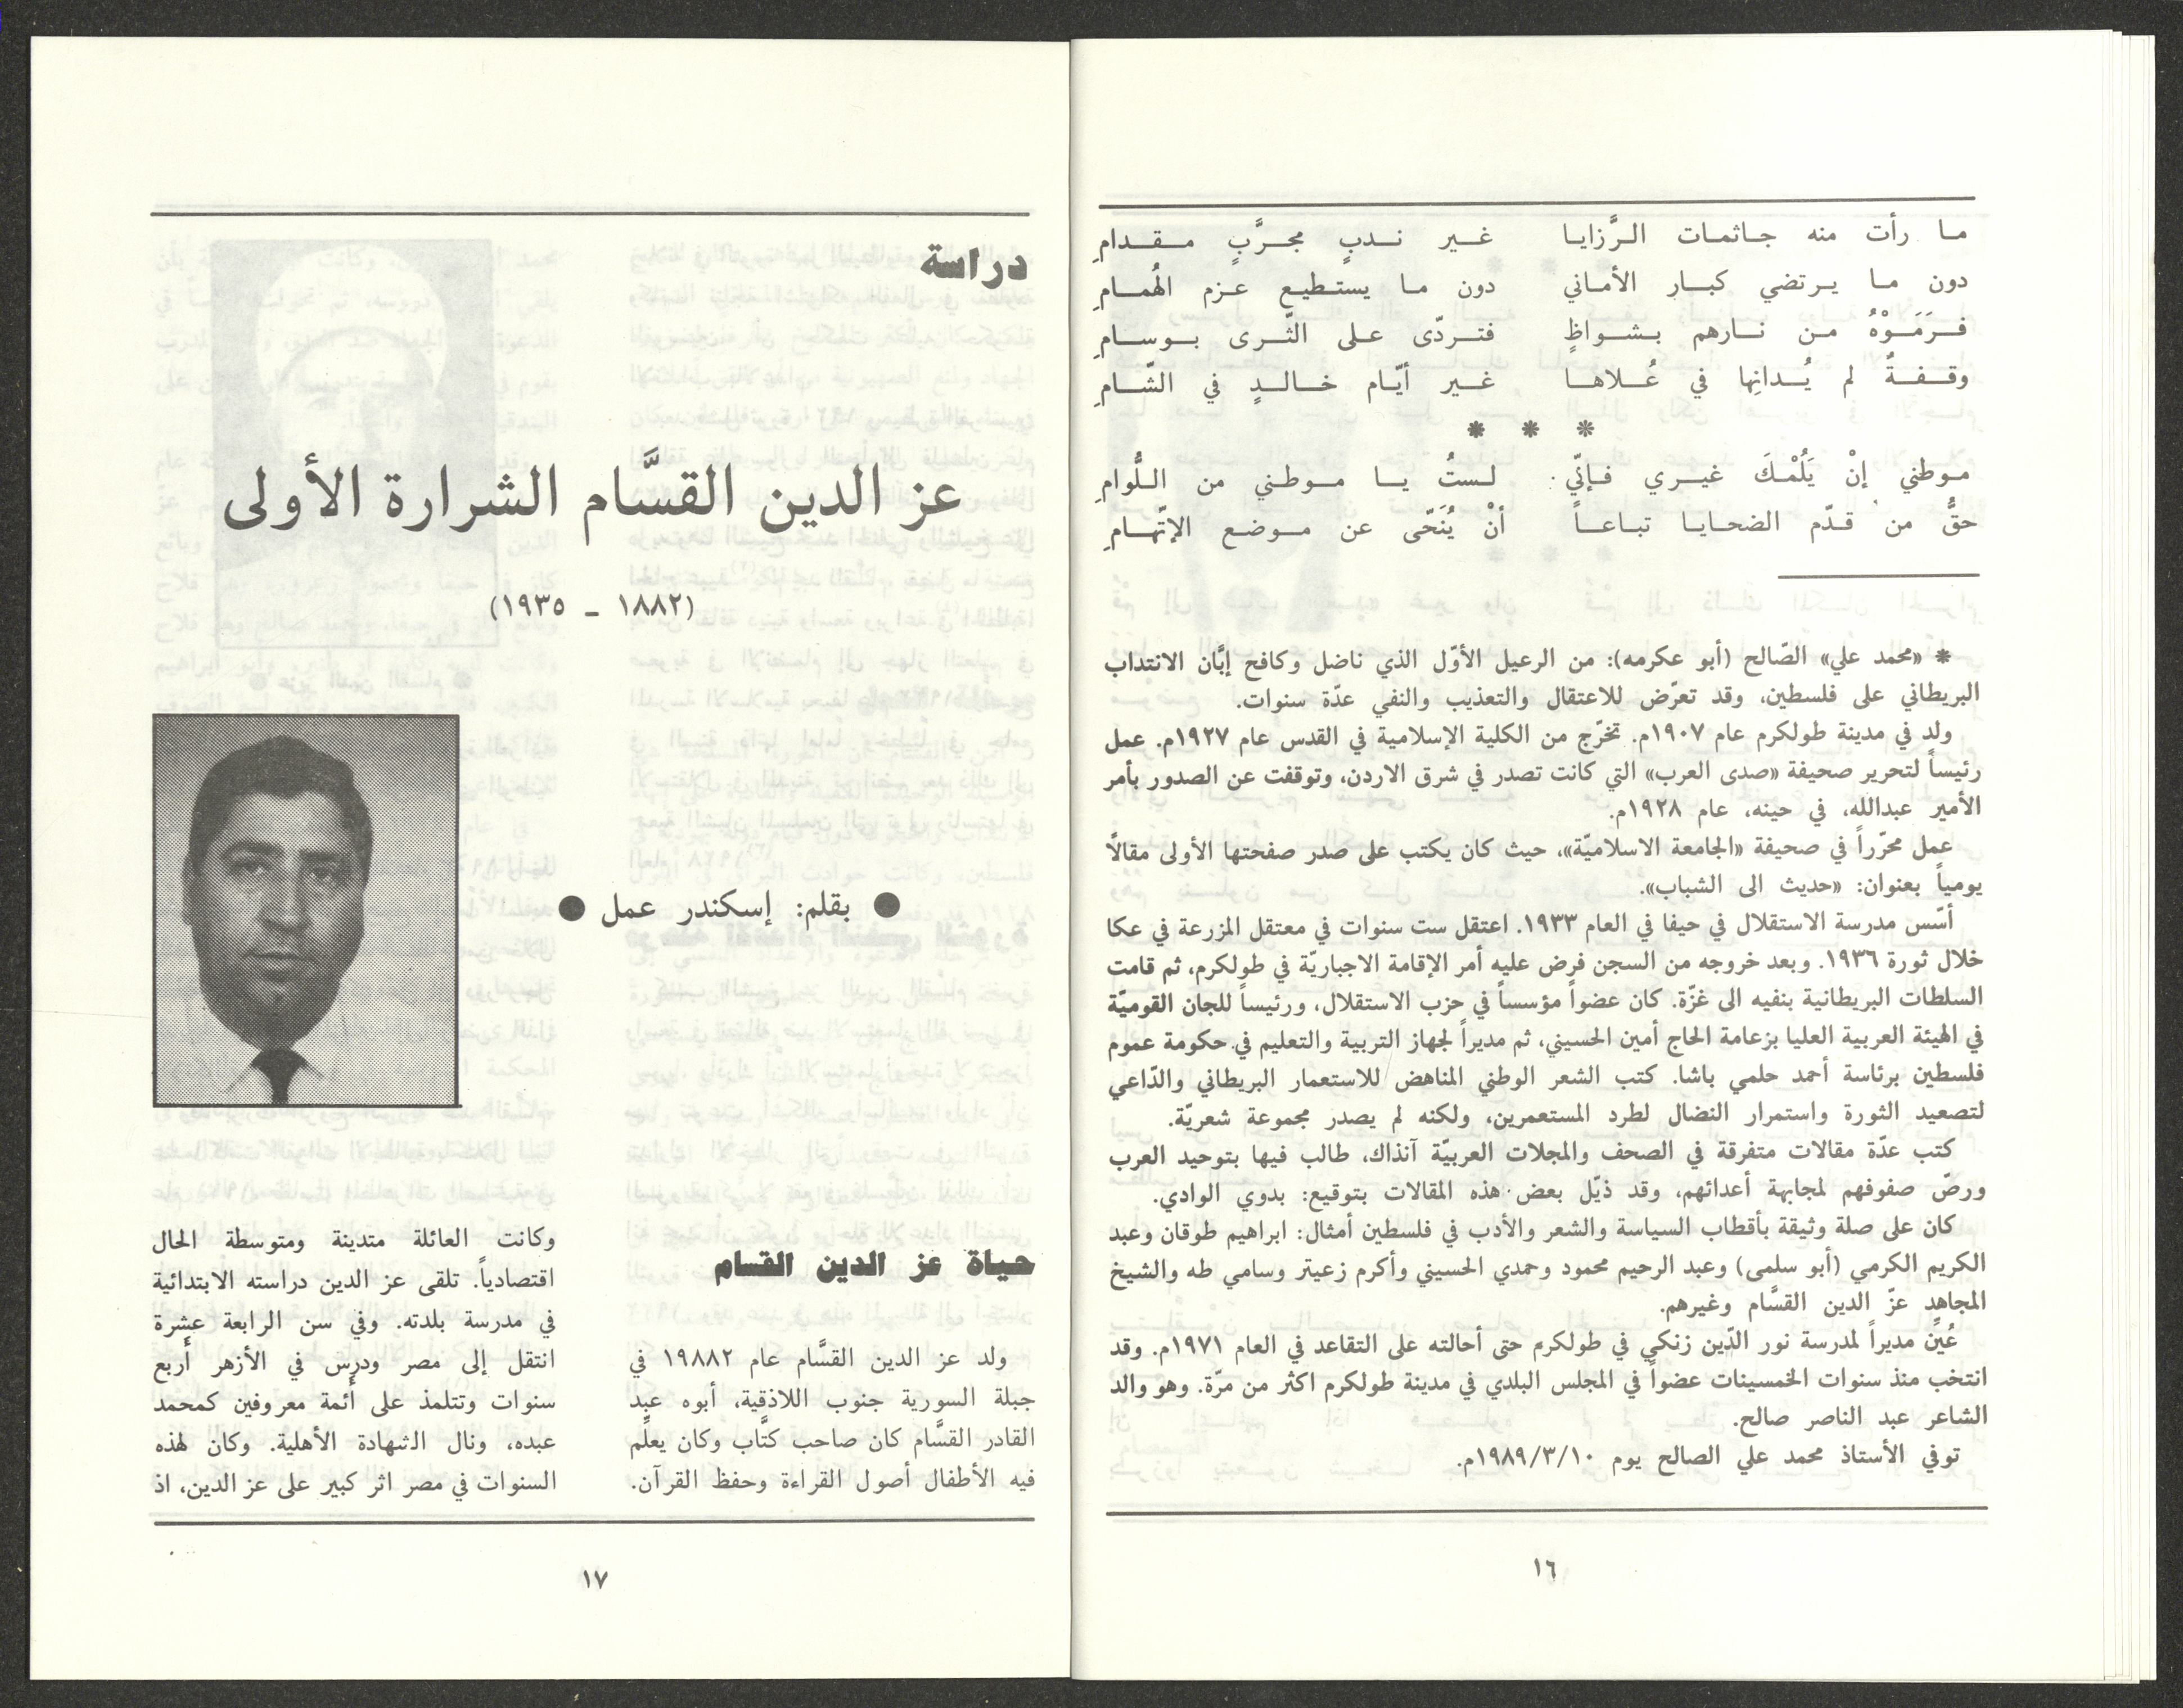 ما رأت منه جاثمات الرَّزايا غير ندبٍ مجرَّبٍ مقدامِ
دون ما يرتضي كبار الأماني دون ما يستطيع عزم الهُمامِ
فرَمَوْهُ من نارهم بشواظٍ فتردّى على الثّرى بوسامِ
وقفةٌ لم يُدانِها في عُلاها غير أيّام خالدٍ في الشّامِ
* * *
موطني إنْ يَلُمْكَ غيري فإنّي لستُ يا موطني من اللُّوامِ
حقُّ من قدّم الضحايا تباعاً أنْ يُنَحّى عن موضع الإتّهامِ
* «محمد علي» الصّالح (أبو عكرمه): من الرعيل الأوّل الذي ناضل وكافح إبَّان الانتداب
البريطاني على فلسطين، وقد تعرّض للاعتقال والتعذيب والنفي عدّة سنوات.
ولد في مدينة طولكرم عام ١٩٠٧م. تخرّج من الكلية الإسلامية في القدس عام ١٩٢٧م. عمل
رئيساً لتحرير صحيفة «صدى العرب» التي كانت تصدر في شرق الاردن، وتوقفت عن الصدور بأمر
الأمير عبدالله، في حينه، عام ١٩٢٨م.
عمل محرّراً في صحيفة «الجامعة الاسلاميّة»، حيث كان يكتب على صدر صفحتها الأولى مقالًا
يومياً بعنوان: «حديث الى الشباب».
أسّس مدرسة الاستقلال في حيفا في العام ١٩٣٣. اعتقل ست سنوات في معتقل المزرعة في عكا
خلال ثورة ١٩٣٦. وبعد خروجه من السجن فرض عليه أمر الإقامة الاجباريّة في طولكرم، ثم قامت
السلطات البريطانية بنفيه الى غزّة. كان عضواً مؤسساً في حزب الاستقلال، ورئيساً للجان القوميّة
في الهيئة العربية العليا بزعامة الحاج أمين الحسيني، ثم مديراً لجهاز التربية والتعليم في حكومة عموم
فلسطين برئاسة أحمد حلمي باشا. كتب الشعر الوطني المناهض للاستعمار البريطاني والدّاعي
لتصعيد الثورة واستمرار النضال لطرد المستعمرين، ولكنه لم يصدر مجموعة شعريّة.
كتب عدّة مقالات متفرقة في الصحف والمجلات العربيّة آنذاك، طالب فيها بتوحيد العرب
ورصّ صفوفهم لمجابهة أعدائهم، وقد ذيّل بعض هذه المقالات بتوقيع: بدوي الوادي.
كان على صلة وثيقة بأقطاب السياسة والشعر والأدب في فلسطين أمثال: ابراهيم طوقان وعبد
الكريم الكرمي (أبو سلمى) وعبد الرحيم محمود وحمدي الحسيني وأكرم زعيتر وسامي طه والشيخ
المجاهد عزّ الدين القسَّام وغيرهم.
عُيّن مديراً لمدرسة نور الدّين زنكي في طولكرم حتى أحالته على التقاعد في العام ١٩٧١م. وقد
انتخب منذ سنوات الخمسينات عضواً في المجلس البلدي في مدينة طولكرم اكثر من مرّة. وهو والد
الشاعر عبد الناصر صالح.
توفي الأستاذ محمد علي الصالح يوم ١٩٨٩/٣/١٠م.
١٦
دراسة
عز الدين القسَّام الشرارة الأولى
(١٨٨٢ - ١٩٣٥)
● بقلم: إسكندر عمل ●
حياة عز الدين القسام
ولد عز الدين القسَّام عام ١٩٨٨٢ في
جبلة السورية جنوب اللاذقية، أبوه عبد
القادر القسَّام كان صاحب كتَّاب وكان يعلِّم
فيه الأطفال أصول القراءة وحفظ القرآن.
وكانت العائلة متدينة ومتوسطة الحال
اقتصادياً. تلقى عز الدين دراسته الابتدائية
في مدرسة بلدته. وفي سن الرابعة عشرة
انتقل إلى مصر ودرس في الأزهر أربع
سنوات وتتلمذ على أئمة معروفين كمحمد
عبده، ونال الشهادة الأهلية. وكان لهذه
السنوات في مصر اثر كبير على عز الدين، اذ
١٧